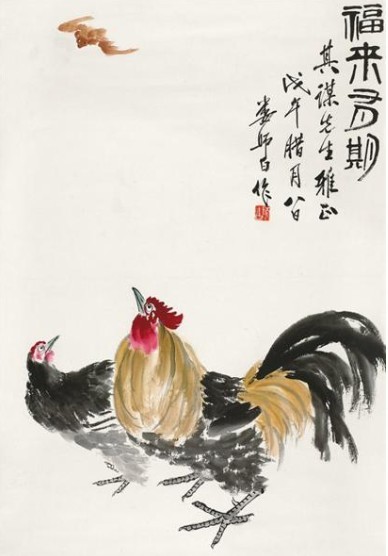 福来有期
其谋先生雅正
戊午腊月八日
娄师白作